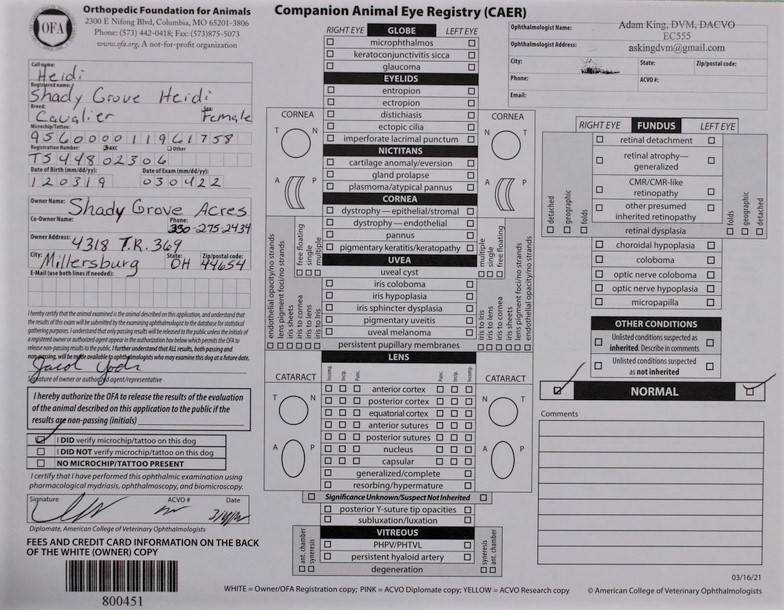 OFA
Orthopedic Foundation for Animals
2300 E Nifong Blvd, Columbia, MO 65201-3806
Phone: (573) 442-0418; Fax: (573)875-5073
www.ofa.org, A not-for-profit organization
Companion Animal Eye Registry (CAER)
Ophthalmologist Name:
Adam King, DVM, DACVO
EC555
Ophthalmologist Address:
askingdvm@gmail.com
City: State: Zip/postal code:
Phone: ACVO #:
Email:
Call name:
Heidi
Registered name:
Shady Grove Heidi
Breed: Sex:
Cavalier Female
Microchip/Tattoo:
956000011961758
Registration Number: AKC Other
TS44802306
Date of Birth (mm/dd/yy): Date of Exam (mm/dd/yy):
120319 030422
Owner Name: Shady Grove Acres
Co-Owner Name: Phone:
330-275-2434
Owner Address: 4318 T.R. 369
City: State: Zip/postal code:
Millersburg OH 44654
E-Mail (use both lines if needed):
I hereby certify that the animal examined is the animal described on this application, and understand that
the results of this exam will be submitted by the examining ophthalmologist to the database for statistical
gathering purposes. I understand that only passing results will be released to the public unless the initials of
a registered owner or authorized agent appear in the authorization box below which permits the OFA to
release non-passing results to the public. I further understand that ALL results, both passing and
non-passing, will be made available to ophthalmologists who may examine this dog at a future date.
Signature of owner or authorized agent/representative
I hereby authorize the OFA to release the results of the evaluation
of the animal described on this application to the public if the
results are non-passing (initials)
I DID verify microchip/tattoo on this dog
I DID NOT verify microchip/tattoo on this dog
NO MICROCHIP/TATTOO PRESENT
I certify that I have performed this ophthalmic examination using
pharmacological mydriasis, ophthalmoscopy, and biomicroscopy.
Signature ACVO # Date
Diplomate, American College of Veterinary Ophthalmologists
FEES AND CREDIT CARD INFORMATION ON THE BACK
OF THE WHITE (OWNER) COPY
800451
RIGHT EYE GLOBE LEFT EYE
microphthalmos
keratoconjunctivitis sicca
glaucoma
EYELIDS
entropion
ectropion
distichiasis
ectopic cilia
imperforate lacrimal punctum
NICTITANS
cartilage anomaly/eversion
gland prolapse
plasmoma/atypical pannus
CORNEA
dystrophy — epithelial/stromal
dystrophy — endothelial
pannus
pigmentary keratitis/keratopathy
UVEA
uveal cyst
iris coloboma
iris hypoplasia
iris sphincter dysplasia
pigmentary uveitis
uveal melanoma
persistent pupillary membranes
LENS
anterior cortex
posterior cortex
equatorial cortex
anterior sutures
posterior sutures
nucleus
capsular
generalized/complete
resorbing/hypermature
Significance Unknown/Suspect Not Inherited
posterior Y-suture tip opacities
subluxation/luxation
VITREOUS
PHPV/PHTVL
persistent hyaloid artery
degeneration
CORNEA
T N
A P
free floating
single
multiple
endothelial opacity/no strands
lens pigment foci/no strands
iris sheets
iris to cornea
iris to lens
iris to iris
CATARACT
Incomp. Incip. Punc.
T N
A P
ant. chamber
syneresis
CORNEA
N T
A P
multiple
single
free floating
iris to iris
iris to lens
iris to cornea
iris sheets
lens pigment foci/no strands
endothelial opacity/no strands
CATARACT
Punc. Incip. Incomp.
N T
A P
syneresis
ant. chamber
RIGHT EYE FUNDUS LEFT EYE
retinal detachment
retinal atrophy—
generalized
CMR/CMR-like
retinopathy
other presumed
inherited retinopathy
retinal dysplasia
detached
geographic
folds
folds
geographic
detached
choroidal hypoplasia
coloboma
optic nerve coloboma
optic nerve hypoplasia
micropapilla
OTHER CONDITIONS
Unlisted conditions suspected as
inherited. Describe in comments
Unlisted conditions suspected
as not inherited
NORMAL
Comments
03/16/21
WHITE = Owner/OFA Registration copy; PINK = ACVO Diplomate copy; YELLOW = ACVO Research copy
© American College of Veterinary Ophthalmologists